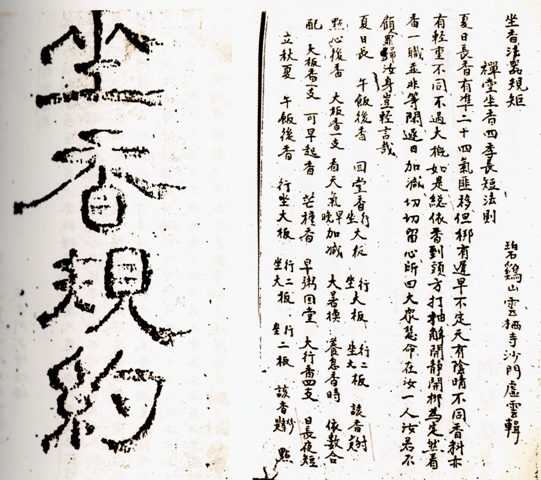 坐香法器規矩 碧鷄山雲栖寺沙門虛雲輯
禪堂坐香四季長短法則
夏日長香有準二十四氣匪移但梆有遲早不定天有陰晴不同香料亦
有輕重不同不過大概如是總依香到頭方打抽解開靜開梆為定然看
香一職並非等閒逐日加減切切留心所四大眾慧命在汝一人汝若不
顧罪歸汝身豈輕言哉
夏日長 午飯後香 回堂香行坐大板 行大板 坐大 行二板 該香
點心後香 大板香一支 看天氣早晚加減 大著換 養息香時 依數合
配 大板香一支 可早起香 芒種香 早粥回堂 大行香四支 日長夜短
立秋夏 午飯後香 行坐大板 行二板 坐大 行坐二板 該香 點
坐香規約